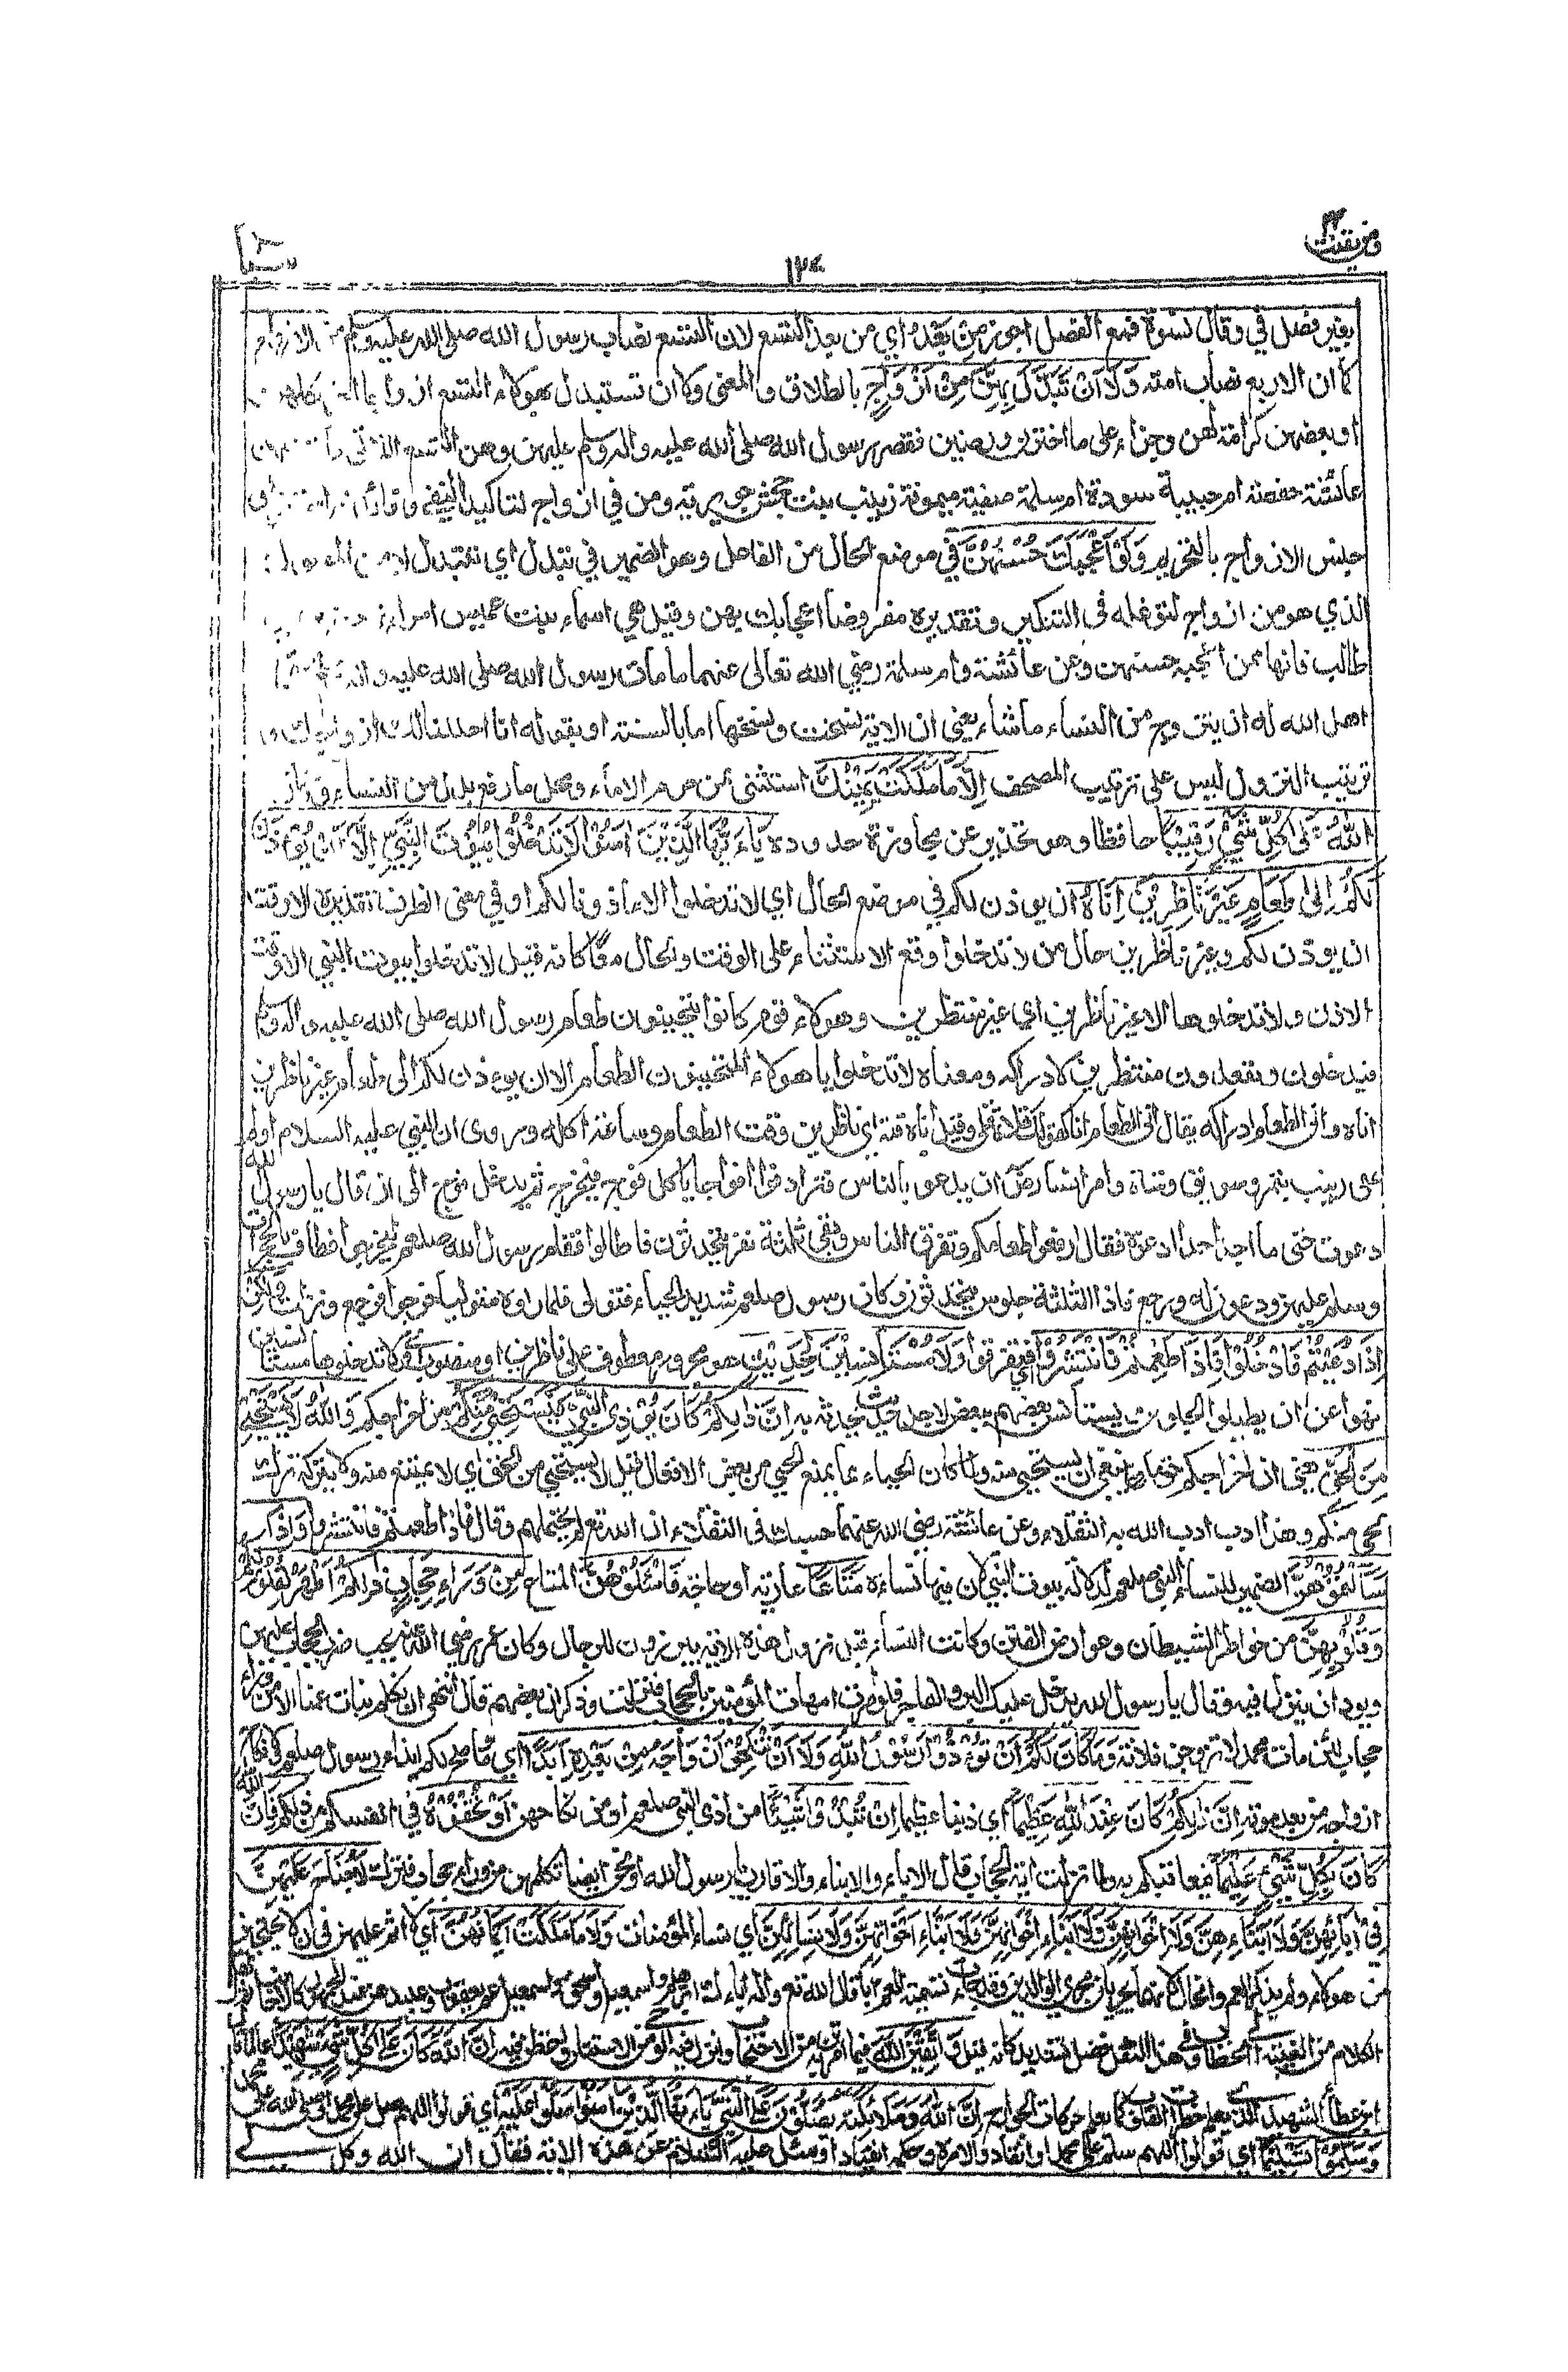 ومن يقنت ٢٢
١٢٤
بغير فصل في وقال نسوة فمع الفصل اجوز مِنْ بَعْدُ اي من بعد التسع لان التسع نصاب رسول الله صلى الله عليه وسلم من الازواج
كما ان الاربع نصاب امته وَلَا اَنْ تَبَدَّلَ بِهِنَّ مِنْ اَزْوَاجٍ بالطلاق والمعنى ولا ان تستبدل بهولاء التسع ازواجا اخر بكلهن
او بعضهن كرامة لهن وجزاء على ما اخترن ورضين فقصر رسول الله صلى الله عليه واله وسلم عليهن وهن التسع التي مات عنهن
عائشة حفصة ام حبيبة سودة ام سلمة صفية ميمونة زينب بنت جحش جويرية ومن في ازواج لتاكيد النفي وفائدته استغراق
جنس الازواج بالتحريم وَلَوْ اَعْجَبَكَ حُسْنُهُنَّ في موضع الحال من الفاعل وهو الضمير في تبدل اي تتبدل لا من المفعول
الذي هو من ازواج لتوغله في التنكير وتقديره مفروضا اعجابك بهن وقيل هي اسماء بنت عميس امراة
طالب فانها ممن اعجبه حسنهن وعن عائشة وام سلمة رضي الله تعالى عنهما ما مات رسول الله صلى الله عليه واله
احل الله له ان يتزوج من النساء ما شاء يعني ان الاية نسخت ونسخها اما بالسنة او بقوله انا احللنا لك ازواجك و
ترتيب النزول ليس على ترتيب المصحف اِلَّا مَا مَلَكَتْ يَمِيْنُكَ استثنى ممن حرم الاماء ومحل ما رفع بدل من النساء وَكَانَ
اللّٰهُ عَلٰى كُلِّ شَيْءٍ رَقِيْبًا حافظا وهو تحذير عن مجاوزة حدوده يَاءَيُّهَا الَّذِيْنَ اٰمَنُوْا لَا تَدْخُلُوْا بُيُوْتَ النَّبِيِّ اِلَّا اَنْ يُؤْذَنَ
لَكُمْ اِلٰى طَعَامٍ غَيْرَ نَاظِرِيْنَ اِنَاهُ ان يوذن لكم في موضع الحال اي لا تدخلوا الا ماذونا لكم او في معنى الظرف تقديره الا وقت
ان يوذن لكم وغير ناظرين حال من لا تدخلوا وقع الاستثناء على الوقت والحال معا كانه قيل لا تدخلوا بيوت النبي الا وقت
الاذن ولا تدخلوها الا غير ناظرين اي غير منتظرين وهولاء قوم كانوا يتحينون طعام رسول الله صلى الله عليه واله وسلم
فيدخلون ويقعدون منتظرين لادراكه ومعناه لا تدخلوا يا هولاء المتحينون الطعام الا ان يوذن لكم الى طعام غير ناظرين
اناه وانى الطعام ادراكه يقال انى الطعام انا كقولك قلاه قلى وقيل اناه وقته اي ناظرين وقت الطعام وساعة اكله وروى ان النبي عليه السلام اولم
على زينب بتمر وسويق وشاة وامر انسا رض ان يدعو بالناس فترادفوا افواجا ياكل فوج فيخرج ثم يدخل فوج الى ان قال يا رسول الله
دعوت حتى ما اجد احدا ادعوه فقال ارفعوا طعامكم وتفرق الناس وبقي ثلثة نفر يتحدثون فاطالوا فقام رسول الله صلعم ليخرجوا فطاف بالحجرات
وسلم عليهن ودعون له ورجع فاذا الثلثة جلوس يتحدثون وكان رسول صلعم شديد الحياء فتولى فلما راوه متوليا خرجوا فرجع ونزلت وَلٰكِنْ
اِذَا دُعِيْتُمْ فَادْخُلُوْا فَاِذَا طَعِمْتُمْ فَانْتَشِرُوْا اي فتفرقوا وَلَا مُسْتَاْنِسِيْنَ لِحَدِيْثٍ هو مجرور معطوف على ناظرين او منصوب اي ولا تدخلوها مستانسين
نهوا عن ان يطيلوا الجلوس يستانس بعضهم ببعض لاجل حديث يحدثه به اِنَّ ذٰلِكُمْ كَانَ يُؤْذِي النَّبِيَّ فَيَسْتَحْيِيْ مِنْكُمْ من اخراجكم وَاللّٰهُ لَا يَسْتَحْيِيْ
مِنَ الْحَقِّ يعني ان اخراجكم حق ما ينبغي ان يستحيى منه ولما كان الحياء مما يمنع الحيي من بعض الافعال قيل لا يستحيي من الحق اي لا يمتنع منه ولا يتركه ترك
الحيي منكم وهذا ادب ادب الله به الثقلاء وعن عائشة رضي الله عنها حسبك في الثقلاء ان الله تع لم يحتملهم وقال فاذا طعمتم فانتشروا وَاِذَا
سَاَلْتُمُوْهُنَّ الضمير لنساء النبي صلعم لدلالة بيوت النبي لان فيها نساءه مَتَاعًا عارية او حاجة فَاسْئَلُوْهُنَّ المتاع مِنْ وَرَاءِ حِجَابٍ ذٰلِكُمْ اَطْهَرُ لِقُلُوْبِكُمْ
وَقُلُوْبِهِنَّ من خواطر الشيطان وعوارض الفتن وكانت النساء قبل نزول هذه الاية يبرزن للرجال وكان عمر رضي الله عنه يحب ضرب الحجاب عليهن
ويود ان ينزل فيه وقال يا رسول الله يدخل عليك البر والفاجر فلو امرت امهات المؤمنين بالحجاب فنزلت وذكر ان بعضهم قال اننهى ان نكلم بنات عمنا الا من وراء
حجاب لئن مات محمد لاتزوجن فلانة وَمَا كَانَ لَكُمْ اَنْ تُؤْذُوْا رَسُوْلَ اللّٰهِ وَلَا اَنْ تَنْكِحُوْا اَزْوَاجَهُ مِنْ بَعْدِهِ اَبَدًا اي ما صح لكم ايذاء رسول صلعم ولا نكاح
ازواجه من بعد موته اِنَّ ذٰلِكُمْ كَانَ عِنْدَ اللّٰهِ عَظِيْمًا اي ذنبا عظيما اِنْ تُبْدُوْا شَيْئًا من اذى النبي صلعم او من نكاحهن اَوْ تُخْفُوْهُ في انفسكم من ذلكم فَاِنَّ اللّٰهَ
كَانَ بِكُلِّ شَيْءٍ عَلِيْمًا فيعاقبكم به ولما نزلت اية الحجاب قال الاباء والابناء والاقارب يا رسول الله او نحن ايضا نكلمهن من وراء حجاب فنزلت لَا جُنَاحَ عَلَيْهِنَّ
فِيْ اٰبَائِهِنَّ وَلَا اَبْنَاءِهِنَّ وَلَا اِخْوَانِهِنَّ وَلَا اَبْنَاءِ اِخْوَانِهِنَّ وَلَا اَبْنَاءِ اَخَوَاتِهِنَّ وَلَا نِسَائِهِنَّ اي نساء المؤمنات وَلَا مَا مَلَكَتْ اَيْمَانُهُنَّ اي لا اثم عليهن في ان لا يحتجبن
من هولاء ولم يذكر العم والخال لانهما يجريان مجرى الوالدين وقد جاءت تسمية العم ابا قال الله تع واله اباءك ابراهيم واسمعيل واسحق واسمعيل عم يعقوب وعبيدهن عند الجمهور كالاجانب ثم نقل
الكلام من الغيبة الى الخطاب وفي هذا النقل فضل تشديد كانه قيل وَاتَّقِيْنَ اللّٰهَ فيما امرتن به من الاحتجاب وانزل فيه الوحي من الاستتار واحتطن فيه اِنَّ اللّٰهَ كَانَ عَلٰى كُلِّ شَيْءٍ شَهِيْدًا عالما قال
ابن عطاء الشهيد الذي يعلم خطرات القلوب كما يعلم حركات الجوارح اِنَّ اللّٰهَ وَمَلَائِكَتَهُ يُصَلُّوْنَ عَلَى النَّبِيِّ يَاءَيُّهَا الَّذِيْنَ اٰمَنُوْا صَلُّوْا عَلَيْهِ اي قولوا اللهم صل على محمد او صلى الله على محمد
وَسَلِّمُوْا تَسْلِيْمًا اي قولوا اللهم سلم على محمد او انقادوا لامره وحكمه انقيادا وسئل عليه السلام عن هذه الاية فقال ان الله وكل